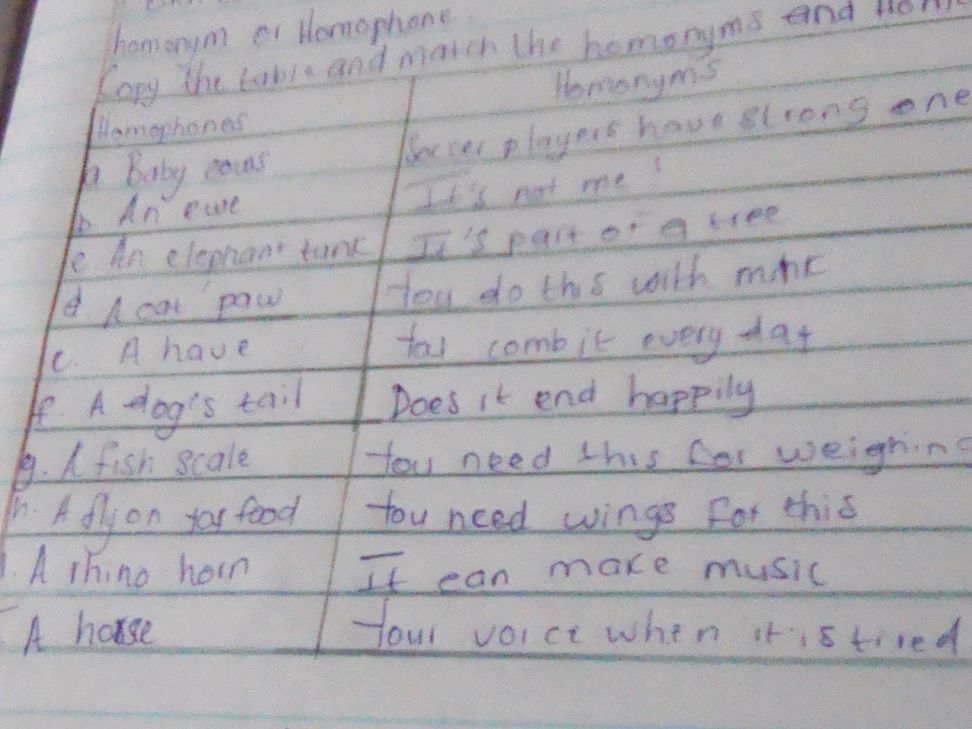 homonym or Homophone
Copy the table and match the homonyms and
Homophones Homonyms
a Baby cows Soccer players have strong one
b. An ewe It's not me!
c. An elephant tunk It's part of a tree
d. A cat paw You do this with milk
e. A have You comb it every day
f. A dog's tail Does it end happily
g. A fish scale You need this for weighing
h. A fly on your food You need wings for this
i. A rhino horn It can make music
A horse Your voice when it is tired